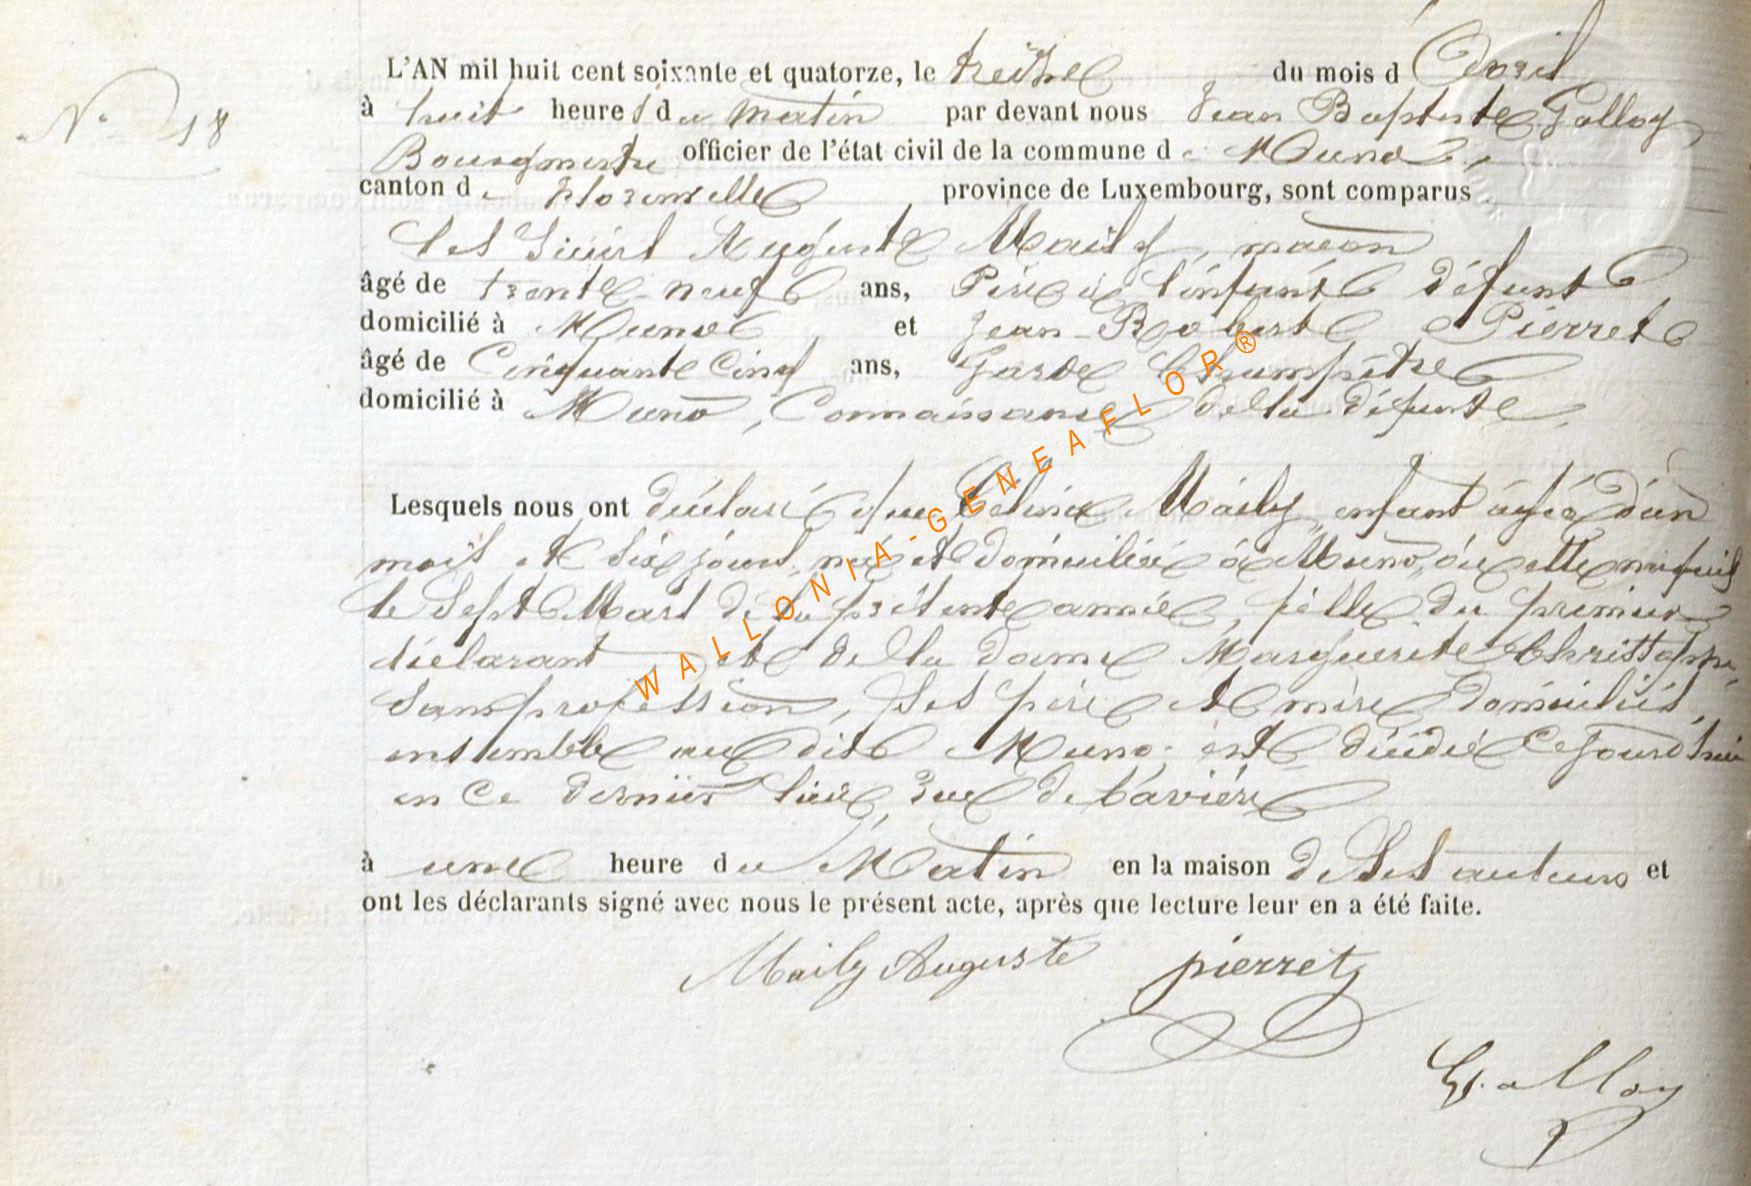 N° 18
L'AN mil huit cent soixante et quatorze, le treize du mois d'Avril
à huit heures du matin par devant nous Jean Baptiste Galloy
Bourgmestre officier de l'état civil de la commune de Muno,
canton de Florenville province de Luxembourg, sont comparus
les Sieurs Auguste Maily, maçon
âgé de trente-neuf ans, Père de l'enfant défunt
domicilié à Muno et Jean-Robert Pierret
âgé de Cinquante Cinq ans, Garde Champêtre
domicilié à Muno, Connaissance de la défunte,
Lesquels nous ont déclaré que Celina Maily, enfant âgée d'un
mois et six jours, née et domiciliée à Muno, où elle naquit
le sept Mars de la présente année, fille du premier
déclarant et de la dame Marguerite Christophe,
sans profession, ses père et mère domiciliés,
ensemble au dit Muno, est décédée Cejourd'hui
en Ce dernier lieu, rue de bavière
à une heure du Matin en la maison de Ses auteurs et
ont les déclarants signé avec nous le présent acte, après que lecture leur en a été faite.
Maily Auguste pierret
Galloy
WALLONIA-GENEAFLOR®